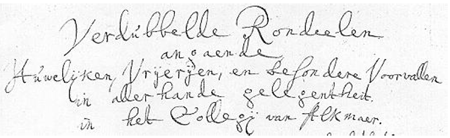 Verdubbelde Rondeelen
angaende
Huwelijken, Vrijerijen, en besondere Voorvallen
in allerhande gelegentheit.
in het Collegij van Alkmaer.